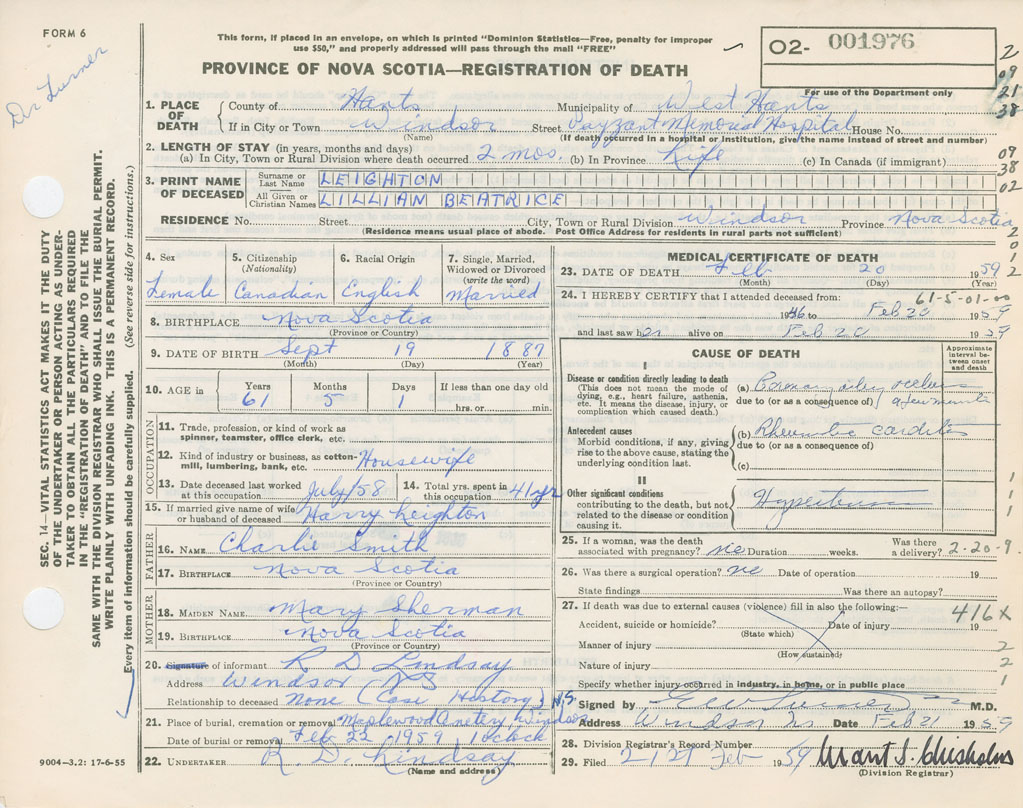 FORM 6
Dr Turner
This form, if placed in an envelope, on which is printed "Dominion Statistics—Free, penalty for improper
use $50," and properly addressed will pass through the mail "FREE"
PROVINCE OF NOVA SCOTIA—REGISTRATION OF DEATH
O2- 001976
For use of the Department only
2
09
21
38
1. PLACE OF DEATH
County of Hants Municipality of West Hants
If in City or Town Windsor Street Payzant Memorial Hospital House No.
(Name) (If death occurred in a hospital or institution, give the name instead of street and number)
2. LENGTH OF STAY (in years, months and days)
(a) In City, Town or Rural Division where death occurred 2 mos. (b) In Province Life (c) In Canada (if immigrant)
09
38
02
3. PRINT NAME OF DECEASED
Surname or Last Name LEIGHTON
All Given or Christian Names LILLIAN BEATRICE
RESIDENCE No. Street City, Town or Rural Division Windsor Province Nova Scotia
(Residence means usual place of abode. Post Office Address for residents in rural parts not sufficient)
2
0
1
2
SEC. 14—VITAL STATISTICS ACT MAKES IT THE DUTY
OF THE UNDERTAKER OR PERSON ACTING AS UNDER-
TAKER TO OBTAIN ALL THE PARTICULARS REQUIRED
IN THE "REGISTRATION OF DEATH" AND TO FILE THE
SAME WITH THE DIVISION REGISTRAR WHO SHALL ISSUE THE BURIAL PERMIT.
WRITE PLAINLY WITH UNFADING INK. THIS IS A PERMANENT RECORD.
Every item of information should be carefully supplied. (See reverse side for instructions.)
4. Sex 5. Citizenship (Nationality) 6. Racial Origin 7. Single, Married, Widowed or Divorced (write the word)
Female Canadian English Married
8. BIRTHPLACE Nova Scotia
(Province or Country)
9. DATE OF BIRTH Sept 19 1887
(Month) (Day) (Year)
10. AGE in Years Months Days If less than one day old
61 5 1 hrs. or min.
OCCUPATION
11. Trade, profession, or kind of work as
spinner, teamster, office clerk, etc.
12. Kind of industry or business, as cotton-
mill, lumbering, bank, etc. Housewife
13. Date deceased last worked at this occupation July/58 14. Total yrs. spent in this occupation 41 yr
15. If married give name of wife
or husband of deceased Harry Leighton
FATHER
16. NAME Charlie Smith
17. BIRTHPLACE Nova Scotia
(Province or Country)
MOTHER
18. MAIDEN NAME Mary Sherman
19. BIRTHPLACE Nova Scotia
(Province or Country)
20. Signature of informant R D Lindsay
Address Windsor NS
Relationship to deceased None (Case History) N.S.
21. Place of burial, cremation or removal Maplewood Cmetery Windsor
Date of burial or removal Feb 22 1959 1 oclock
22. UNDERTAKER R. D. Lindsay
(Name and address)
9004-3.2: 17-6-55
MEDICAL CERTIFICATE OF DEATH
23. DATE OF DEATH Feb 20 1959
(Month) (Day) (Year)
24. I HEREBY CERTIFY that I attended deceased from: 61-5-01-00
Feb 20 1959
and last saw her alive on Feb 20 1959
CAUSE OF DEATH
Approximate interval between onset and death
I
Disease or condition directly leading to death
(This does not mean the mode of
dying, e.g., heart failure, asthenia,
etc. It means the disease, injury, or
complication which caused death.)
(a)
due to (or as a consequence of)
Antecedent causes
Morbid conditions, if any, giving
rise to the above cause, stating the
underlying condition last.
(b) Rheumatic Carditis
due to (or as a consequence of)
(c)
II
Other significant conditions
contributing to the death, but not
related to the disease or condition
causing it.
Hypertension
1
1
1
25. If a woman, was the death
associated with pregnancy? no Duration weeks. Was there a delivery? 2-20-9
26. Was there a surgical operation? no Date of operation 19
State findings Was there an autopsy?
27. If death was due to external causes (violence) fill in also the following:— 416X
Accident, suicide or homicide? Date of injury 19
(State which)
Manner of injury 2
(How sustained)
Nature of injury 2
Specify whether injury occurred in industry, in home, or in public place 1
Signed by M.D.
Address Windsor Ns Date Feb 21 1959
28. Division Registrar's Record Number
29. Filed 21 Feb 1959 Grant S. Chisholm
(Division Registrar)